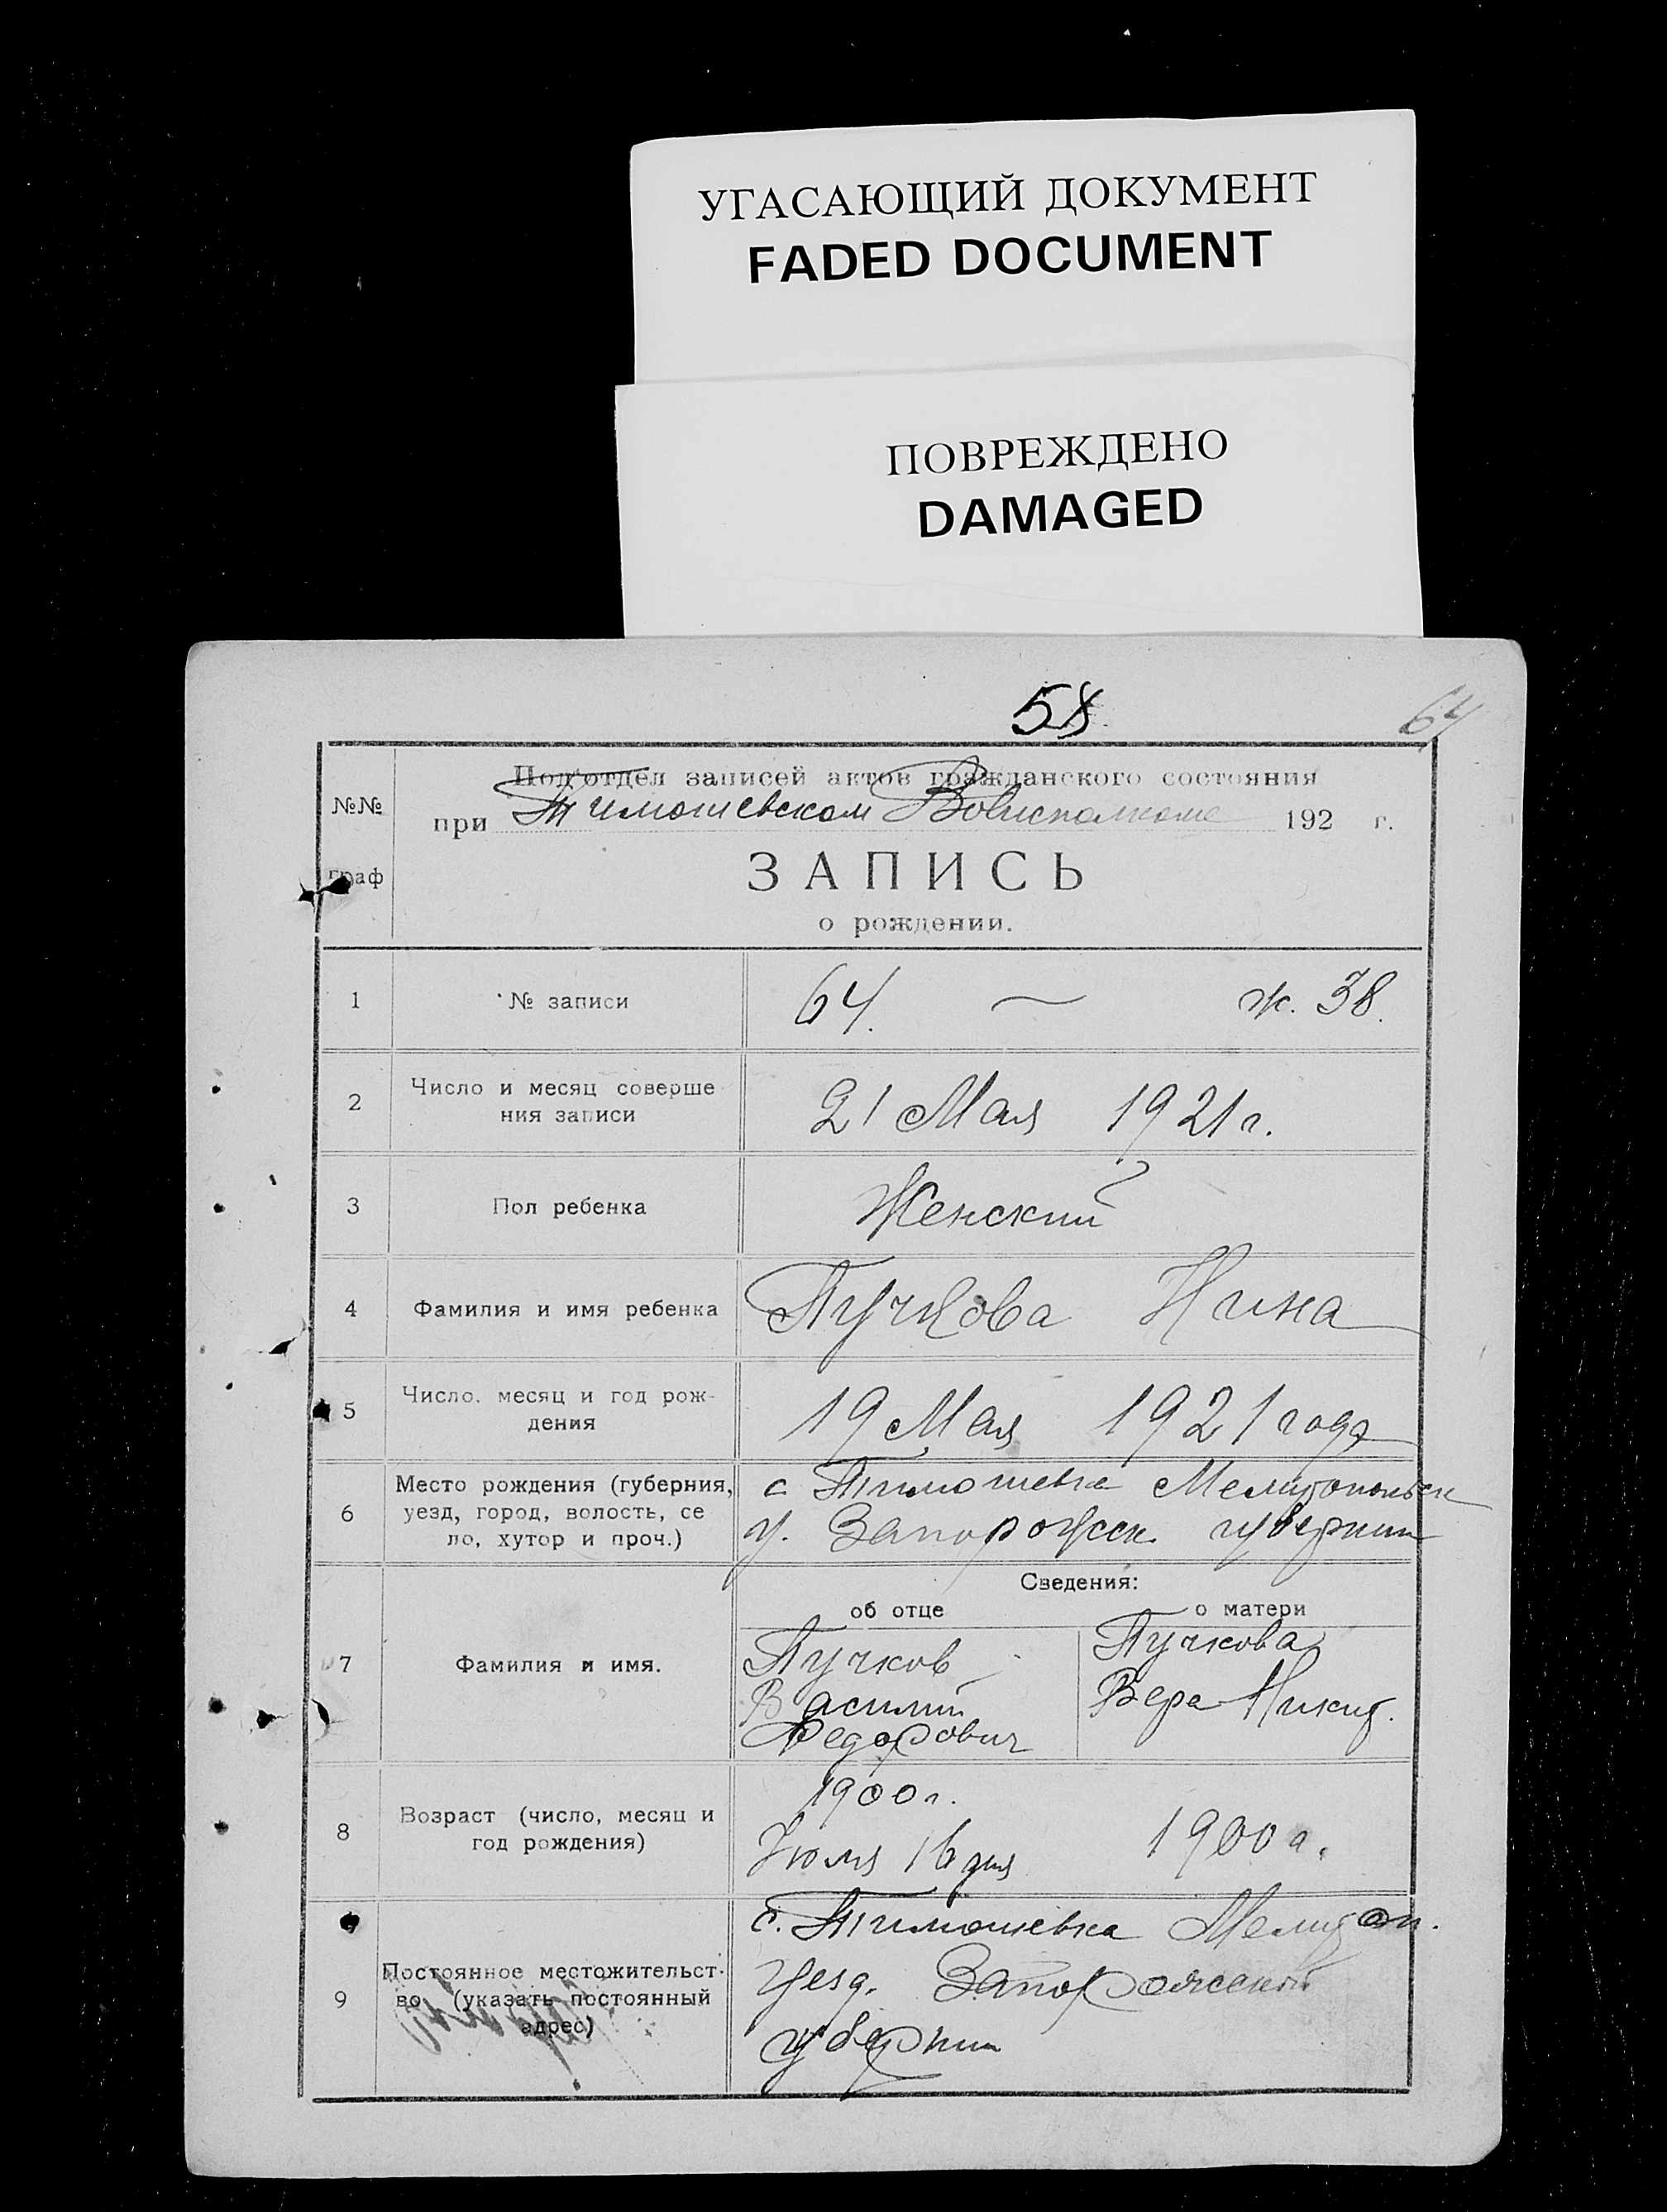 УГАСАЮЩИЙ ДОКУМЕНТ
FADED DOCUMENT
ПОВРЕЖДЕНО
DAMAGED
58
64
№№
граф
Подотдел записей актов гражданского состояния
при Тимошевском Волисполкоме 192 г.
ЗАПИСЬ
о рождении.
1 № записи 64. — ж. 38.
2 Число и месяц соверше
ния записи 21 Мая 1921 г.
3 Пол ребенка Женский
4 Фамилия и имя ребенка Пучкова Нина
5 Число, месяц и год рож-
дения 19 Мая 1921 года
6 Место рождения (губерния,
уезд, город, волость, се
ло, хутор и проч.)
с Тимошевка Мелитопольск
у. Запорожск. губернии
Сведения:
об отце о матери
7 Фамилия и имя.
Пучков
Василий
Федорович
Пучкова
Вера Никит.
8 Возраст (число, месяц и
год рождения)
1900 г.
Июля 16 дня
1900 г.
9 Постоянное местожительст-
во (указать постоянный
адрес)
с. Тимошевка Мелитоп.
уезд. Запорожской
губернии